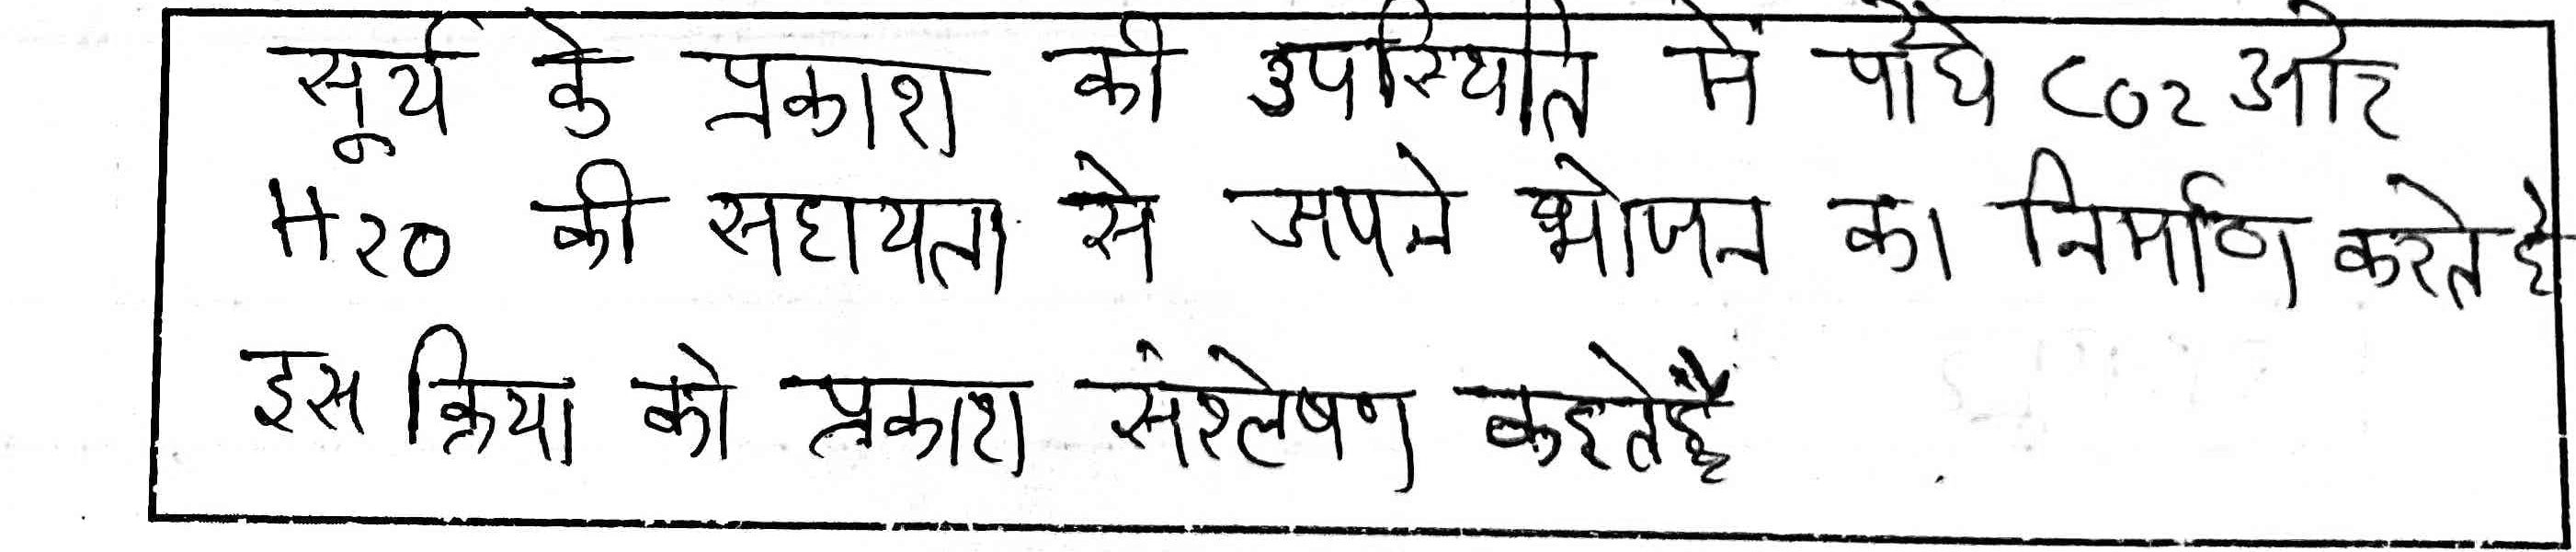 सूर्य के प्रकाश की उपस्थिति में पौधे CO2 और
H2O की सहायता से अपने भोजन का निर्माण करते है
इस क्रिया को प्रकाश संश्लेषण कहते हैं